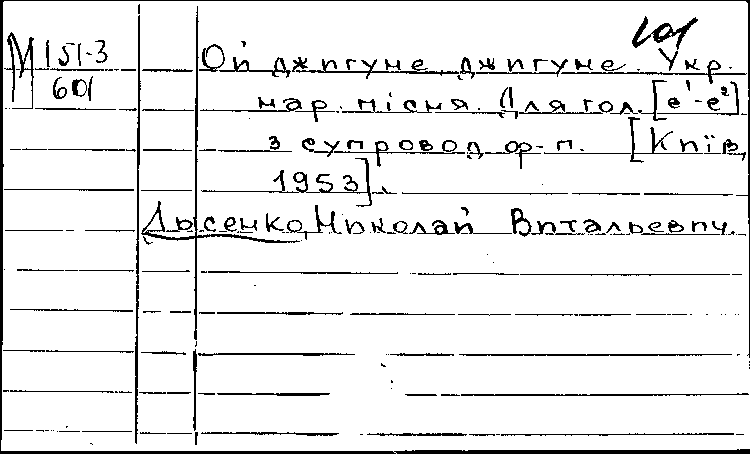 М 151-3
601
Ой джигуне, джигуне. Укр.
нар. пісня. Для гол. [e¹-e²]
з супровод. ф-п. [Київ,
1953].
Лысенко, Николай Витальевич.